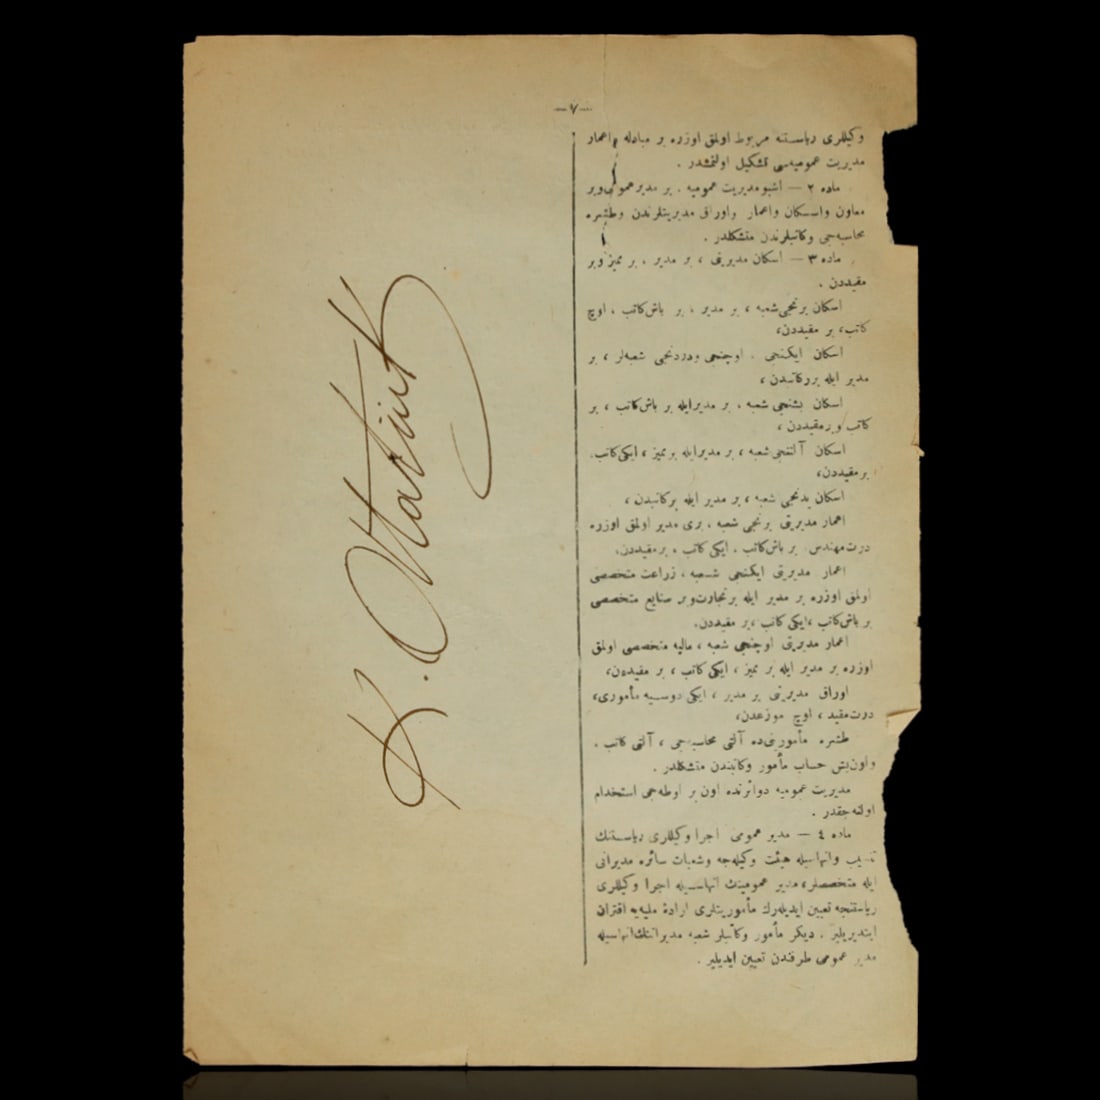 —٧—
وكيللری رياستنه مربوط اولمق اوزره بر مبادله، اعمار
مديريت عموميه‌سی تشكيل اولنمشدر .
ماده ٢ — اشبو مديريت عموميه ، بر مدير عمومی وبر
معاون واسكان واعمار واوراق مديريتلرندن وطشره
محاسبه‌جی وكاتبلرندن متشكلدر .
ماده ٣ — اسكان مديريتی ، بر مدير ، بر مميز وبر
مقيددن .
اسكان برنجی شعبه ، بر مدير ، بر باش‌كاتب ، اوچ
كاتب، بر مقيددن،
اسكان ايكنجی ، اوچنجی ودردنجی شعبه‌لر ، بر
مدير ايله برركاتبدن ،
اسكان بشنجی شعبه ، بر مديرايله بر باش‌كاتب ، بر
كاتب وبر مقيددن ،
اسكان آلتنجی شعبه ، بر مديرايله بر مميز ، ايكی كاتب،
بر مقيددن،
اسكان يدنجی شعبه ، بر مدير ايله بركاتبدن ،
اعمار مديريتی برنجی شعبه ، بری مدير اولمق اوزره
درت مهندس بر باش‌كاتب ، ايكی كاتب ، بر مقيددن،
اعمار مديريتی ايكنجی شعبه ، زراعت متخصصی
اولمق اوزره بر مدير ايله بر تجارت وبر صنايع متخصصی
بر باش‌كاتب ، ايكی كاتب ، بر مقيددن،
اعمار مديريتی اوچنجی شعبه ، ماليه متخصصی اولمق
اوزره بر مدير ايله بر مميز ، ايكی كاتب ، بر مقيددن،
اوراق مديريتی بر مدير ، ايكی دوسيه مأموری،
درت مقيد ، اوچ موزعدن،
طشره مأمورينی‌ده آلتی محاسبه‌جی ، آلتی كاتب ،
واون‌بش حساب مأمور وكاتبندن متشكلدر .
مديريت عموميه دوائرنده اون بر اوطه‌جی استخدام
اولنه‌جقدر .
ماده ٤ — مدير عمومی اجرا وكيللری رياستنك
تنسيب وانهاسيله هيئت وكيله‌جه وشعبات سائره مديرانی
ايله متخصصلر، مدير عمومينك انهاسيله اجرا وكيللری
رياستنجه تعيين ايديله‌رك مأموريتلری ارادهٔ مليه‌يه اقتران
ايتديريلير . ديكر مأمور وكاتبلر شعبه مديرانتك انهاسيله
مدير عمومی طرفندن تعيين ايديلير .
K. Atatürk